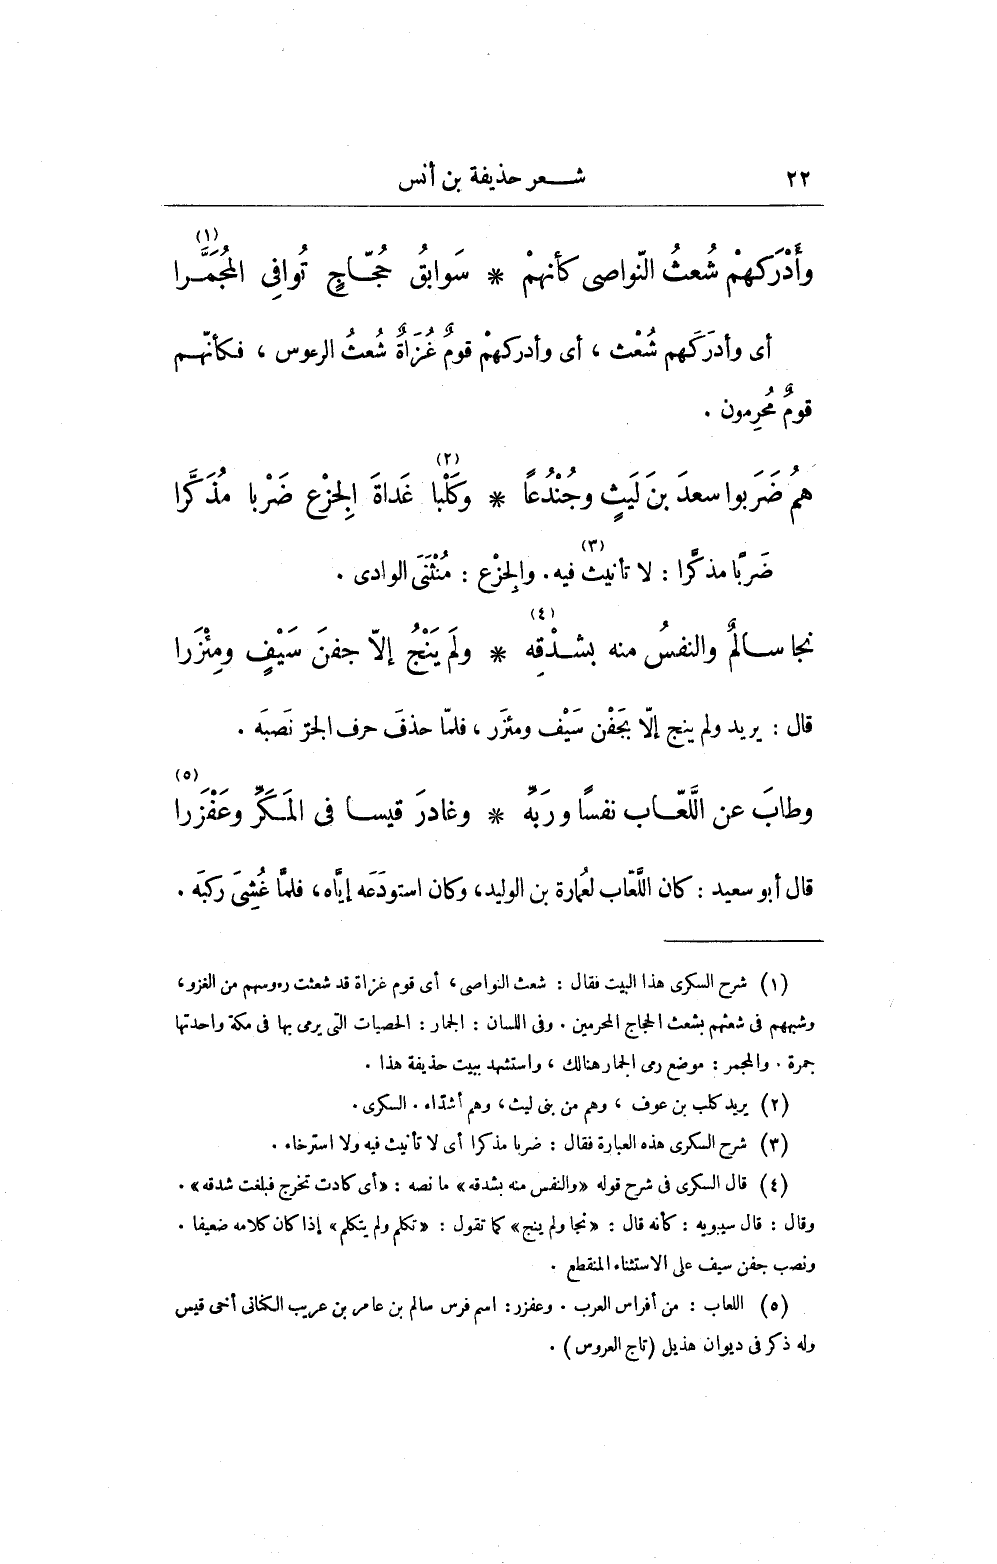 ٢٢ شعر حذيفة بن أنس
وأَدْرَكَهُمْ شُعثُ النّواصى كأنهمْ * سَوابقُ حُجّاجٍ تُوافِى المُجَمَّرا (١)
أى وأدرَكَهم شُعْث ، أى وأدركهمْ قومٌ غُزَاةٌ شُعثُ الرءوس ، فكأنّهم
قومٌ مُحرِمون .
هُمُ ضَرَبوا سعدَ بنَ لَيثٍ وجُنْدُعًا * وكَلْبا (٢) غَداةَ الجِزْعِ ضَرْبا مُذَكَّرا
ضَربًا مذكَّرا : لا تأنيث (٣) فيه. والجِزْع : مُنْثَنَى الوادى .
نجا سالمٌ والنفسُ منه بشدْقِه (٤) * ولَم يَنْجُ إلّا جفنَ سَيْفٍ ومِئْزَرا
قال : يريد ولم ينج إلّا بجَفْن سَيْف ومئزَر ، فلمّا حذفَ حرف الجرّ نَصبَه .
وطابَ عن اللَّعّاب نفسًا ورَبِّه * وغادرَ قيسا فى المَكَرِّ وعَفْزَرا (٥)
قال أبو سعيد : كان اللَّعّاب لعُمارة بن الوليد، وكان استودَعَه إيَّاه، فلمَّا غُشِىَ ركبَه .
(١) شرح السكرى هذا البيت فقال : شعث النواصى، أى قوم غزاة قد شعثت رءوسهم من الغزو،
وشبههم فى شعثهم بشعث الحجاج المحرمين . وفى اللسان : الجمار : الحصيات التى يرمى بها فى مكة واحدتها
جمرة . والمجمر : موضع رمى الجمار هنالك ، واستشهد ببيت حذيفة هذا .
(٢) يريد كلب بن عوف ، وهم من بنى ليث، وهم أشدّاء . السكرى .
(٣) شرح السكرى هذه العبارة فقال : ضربا مذكرا أى لا تأنيث فيه ولا استرخاء .
(٤) قال السكرى فى شرح قوله «والنفس منه بشدقه» ما نصه : «أى كادت تخرج فبلغت شدقه» .
وقال : قال سيبويه : كأنه قال : «نجا ولم ينج» كما تقول : «تكلم ولم يتكلم» إذا كان كلامه ضعيفا .
ونصب جفن سيف على الاستثناء المنقطع .
(٥) اللعاب : من أفراس العرب . وعفزر: اسم فرس سالم بن عامر بن عريب الكنانى أخى قيس
وله ذكر فى ديوان هذيل (تاج العروس) .